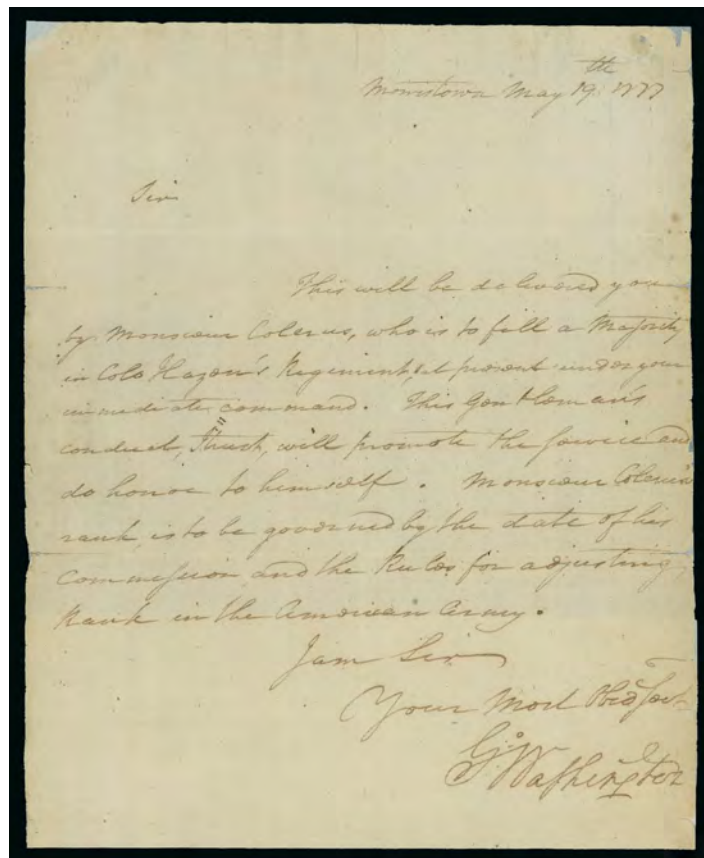 Morristown May 19th 1777
Sir
This will be delivered you
by Monsieur Colerus, who is to fill a Majority
in Colo Hazen's Regiment, at present under your
immediate command. This Gentleman's
conduct, I trust, will promote the service and
do honor to himself. Monsieur Colerus's
rank is to be governed by the date of his
Commission and the Rules for adjusting
Rank in the American Army.
I am Sir
Your Most Obed Servt
Go Washington